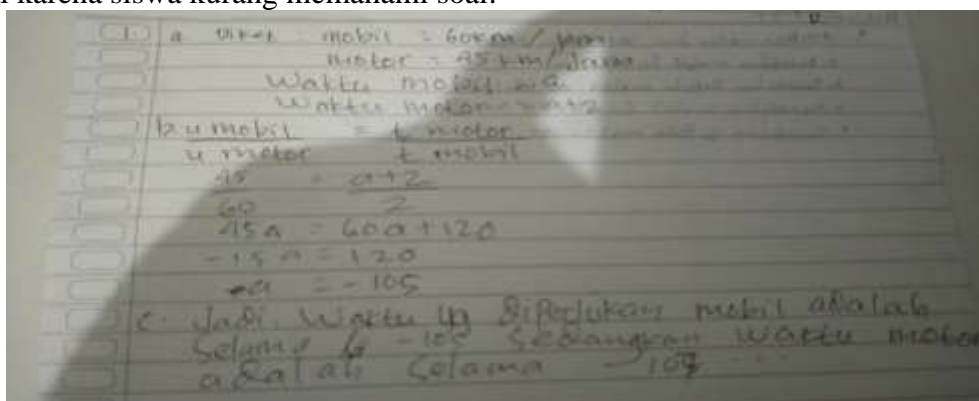 karena siswa kurang memahami soal.
1. a Diket mobil = 60 km / jam
motor = 45 km / Jam
Waktu mobil = a
Waktu motor = a+2
b. u mobil = t motor
u motor t mobil
45 = a+2
60 2
45a = 60a + 120
-15a = 120
a = -105
c. Jadi, Waktu yg diperlukan mobil adalah
Selama -105 Sedangkan Waktu motor
adalah Selama